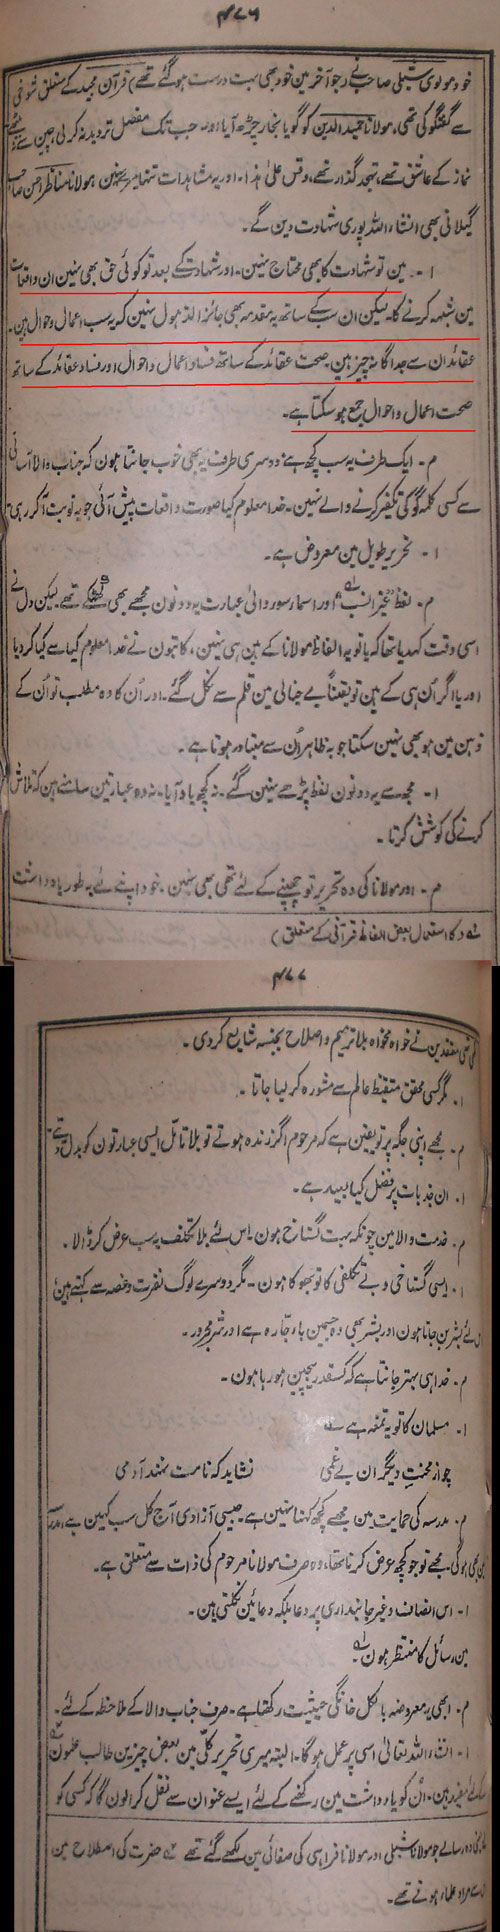 ۴۷۶
خود مولوی شبلی صاحب نے رجو آخر مین خود بھی بہت درست ہو گئے تھے) قرآن مجید کے متعلق شوخی
سے گفتگو کی تھی، مولانا حمید الدین کو گویا بخار چڑھ آیا، اور جب تک مفصل تردید نہ کر لی چین سے نہ بیٹھے
نماز کے عاشق تھے، تہجد گذار تھے، وقس علیٰ ہذا، اور یہ مشاہدات تنہا میرے نہین مولانا مناظر احسن صاحب
گیلانی بھی انشاء اللہ پوری شہادت دین گے۔
ا۔ مین تو شہادت کا بھی محتاج نہین۔ اور شہادت کے بعد تو کوئی حق بھی نہین ان واقعات
مین شبہہ کرنے کا۔ لیکن ان سب کے ساتھ یہ مقدمہ بھی جائز الذہول نہین کہ یہ سب اعمال و احوال ہین۔
عقائد ان سے جداگانہ چیز ہین۔ صحت عقائد کے ساتھ فساد اعمال و احوال اور فساد عقائد کے ساتھ
صحت اعمال و احوال جمع ہو سکتا ہے۔
م۔ ایک طرف یہ سب کچھ ہے، دوسری طرف یہ بھی خوب جانتا ہون کہ جناب والا آسانی
سے کسی کلمہ گو کی تکفیر کرنے والے نہین۔ خدا معلوم کیا صورت واقعات پیش آئی جو یہ نوبت آ کر رہی
ا۔ تحریر طویل مین معروض ہے۔
م۔ لفظ اور اسمار سور والی عبارت یہ دونون مجھے بھی کھٹکے تھے لیکن دل نے
اسی وقت کہدیا تھا کہ یا تو یہ الفاظ مولانا کے ہین ہی نہین، کاتبون نے خدا معلوم کیا سے کیا کر دیا
اور یا اگر اُن ہی کے ہین تو یقیناً بے خیالی مین قلم سے نکل گئے۔ اور اُن کا وہ مطلب تو اُن کے
ذہن مین ہو بھی نہین سکتا جو بہ ظاہر اُن سے متبادر ہوتا ہے۔
ا۔ مجھ سے یہ دونون لفظ پڑھے نہین گئے۔ نہ کچھ یاد آیا۔ نہ وہ عبارتین سامنے ہین کہ تلاش
کرنے کی کوشش کرتا۔
م۔ اور مولانا کی وہ تحریر تو چھپنے کے لئے تھی بھی نہین۔ خود اپنے لئے بہ طور یادداشت
لہ (کا استعمال بعض الفاظ قرآنی کے متعلق)
۴۷۷
معتقدین نے خواہ مخواہ بلا ترمیم و اصلاح بجنسہ شایع کردی۔
ا۔ مگر کسی محقق متیقظ عالم سے مشورہ کر لیا جاتا۔
م۔ مجھے اپنی جگہ پر تو یقین ہے کہ مرحوم اگر زندہ ہوتے تو بلا تامل ایسی عبارتون کو بدل دیتے
ا۔ ان جذبات پر فضل کیا بعید ہے۔
م۔ خدمت والا مین چونکہ بہت گستاخ ہون۔ اس لئے بلا تکلف یہ سب عرض کر ڈالا۔
ا۔ ایسی گستاخی و بے تکلفی کا تو بھوکا ہون۔ مگر دوسرے لوگ نفرت و غصہ سے کہتے ہین
لئے بشر بن جاتا ہون اور بشر بھی وہ جسمین باء جارّہ ہے اور شر مجرور۔
م۔ خدا ہی بہتر جانتا ہے کہ کسقدر بیچین ہو رہا ہون۔
ا۔ مسلمان کا تو یہ تمغہ ہے ؎
چو از محنتِ دیگران بے غمی نشاید کہ نامت نہند آدمی
م۔ مدرسہ کی حمایت مین مجھے کچھ کہنا نہین ہے۔ جیسی آزادی آج کل سب کہین ہے، مدرسہ
مین بھی ہوگی۔ مجھے تو جو کچھ عرض کرنا تھا، وہ صرف مولانا مرحوم کی ذات سے متعلق ہے۔
ا۔ اس انصاف و غیر جانبداری پر دعا بلکہ دعائین نکلتی ہین۔
مین رسائل کا منتظر ہون لہ
م۔ ابھی یہ معروضہ بالکل خانگی حیثیت رکھتا ہے۔ صرف جناب والا کے ملاحظہ کے لئے۔
ا۔ انشاء اللہ تعالیٰ اسی پر عمل ہوگا۔ البتہ میری تحریر کلّی مین بعض چیزین طالب علمون
کے لئے مفید ہین۔ اُن کو یادداشت مین رکھنے کے لئے ایسے عنوان سے نقل کرالون گا کہ کسی کو
رسالے جو مولانا شبلی اور مولانا فراہی کی صفائی مین لکھے گئے تھے ۲ہ حضرت کی اصطلاح مین
سے مراد علماء ہوتے تھے۔